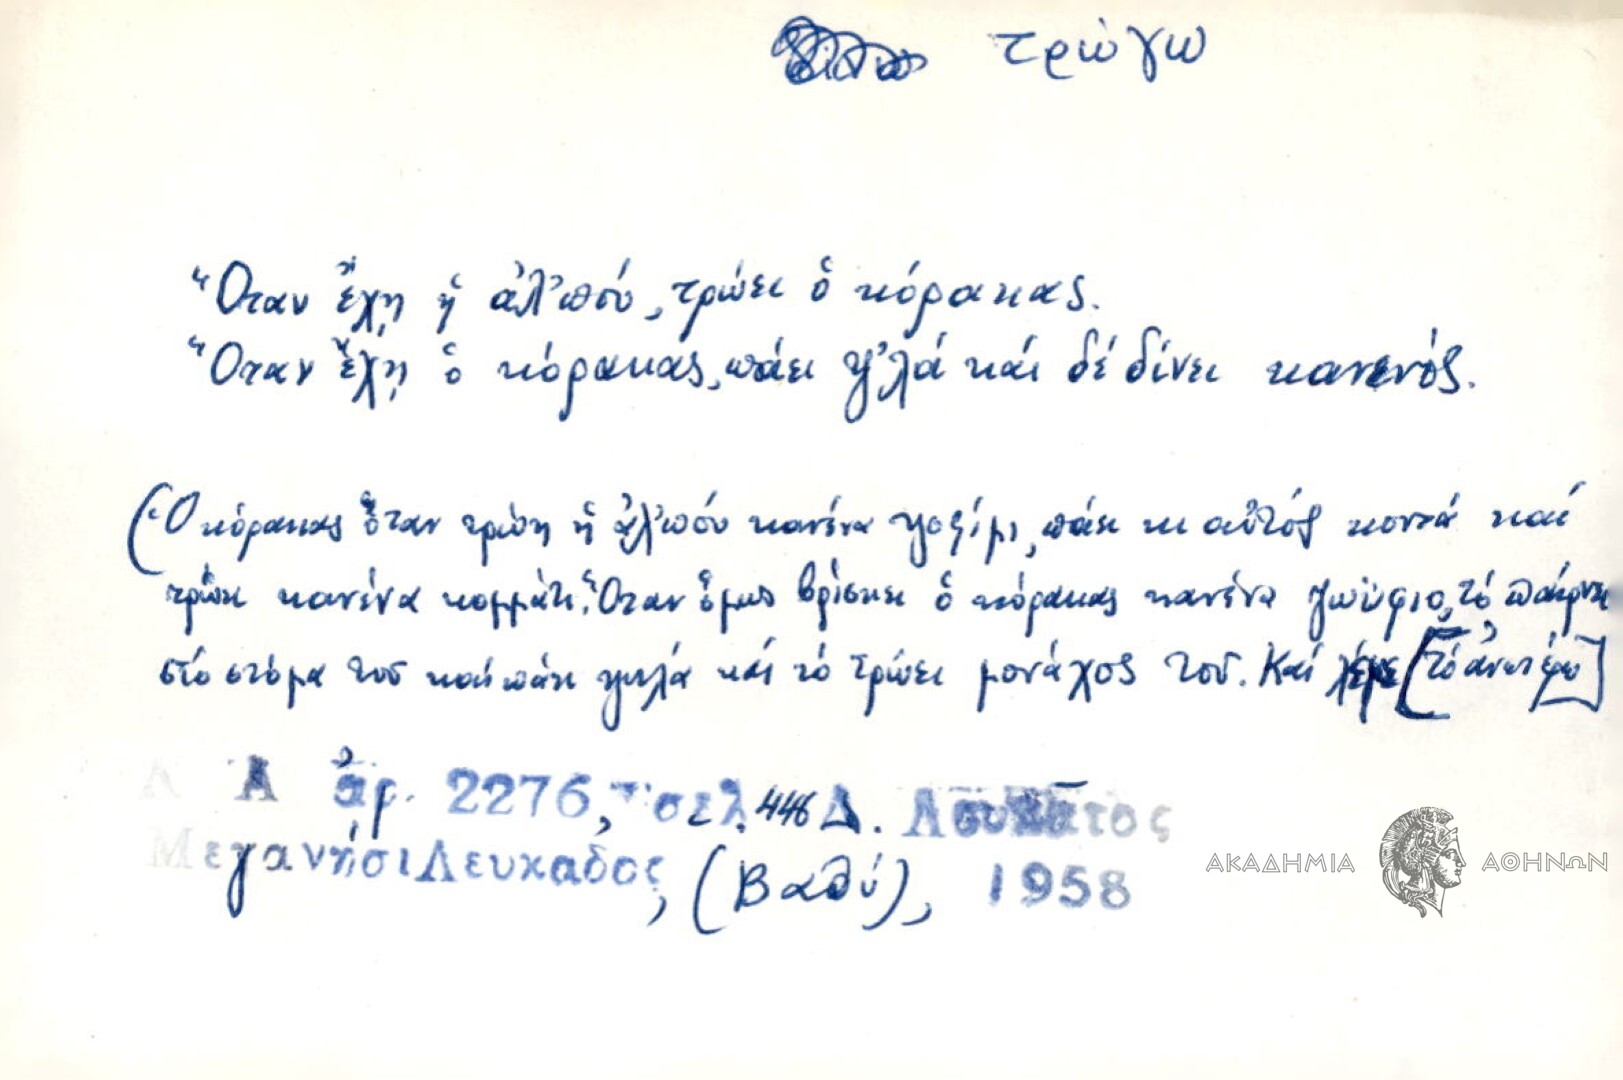 τρώγω
Ὅταν ἔχῃ ἡ ἀλ'πού, τρώει ὁ κόρακας.
Ὅταν ἔχῃ ὁ κόρακας, πάει ψ'λά καί δέ δίνει κανενός.
(Ὁ κόρακας ὅταν τρώῃ ἡ ἀλ'πού κανένα ψοφίμι, πάει κι αὐτός κοντά καί
τρώει κανένα κομμάτι. Ὅταν ὅμως βρίσκει ὁ κόρακας κανένα ζωύφιο, τό παίρνει
στό στόμα του καί πάει ψηλά καί τό τρώει μονάχος του. Καί λέμε [τό ἀνωτέρω]
Λ Α ἀρ. 2276, σελ. 446 Δ. Λουκᾶτος
Μεγανήσι Λευκάδος, (Βαθύ), 1958
ΑΚΑΔΗΜΙΑ ΑΘΗΝΩΝ